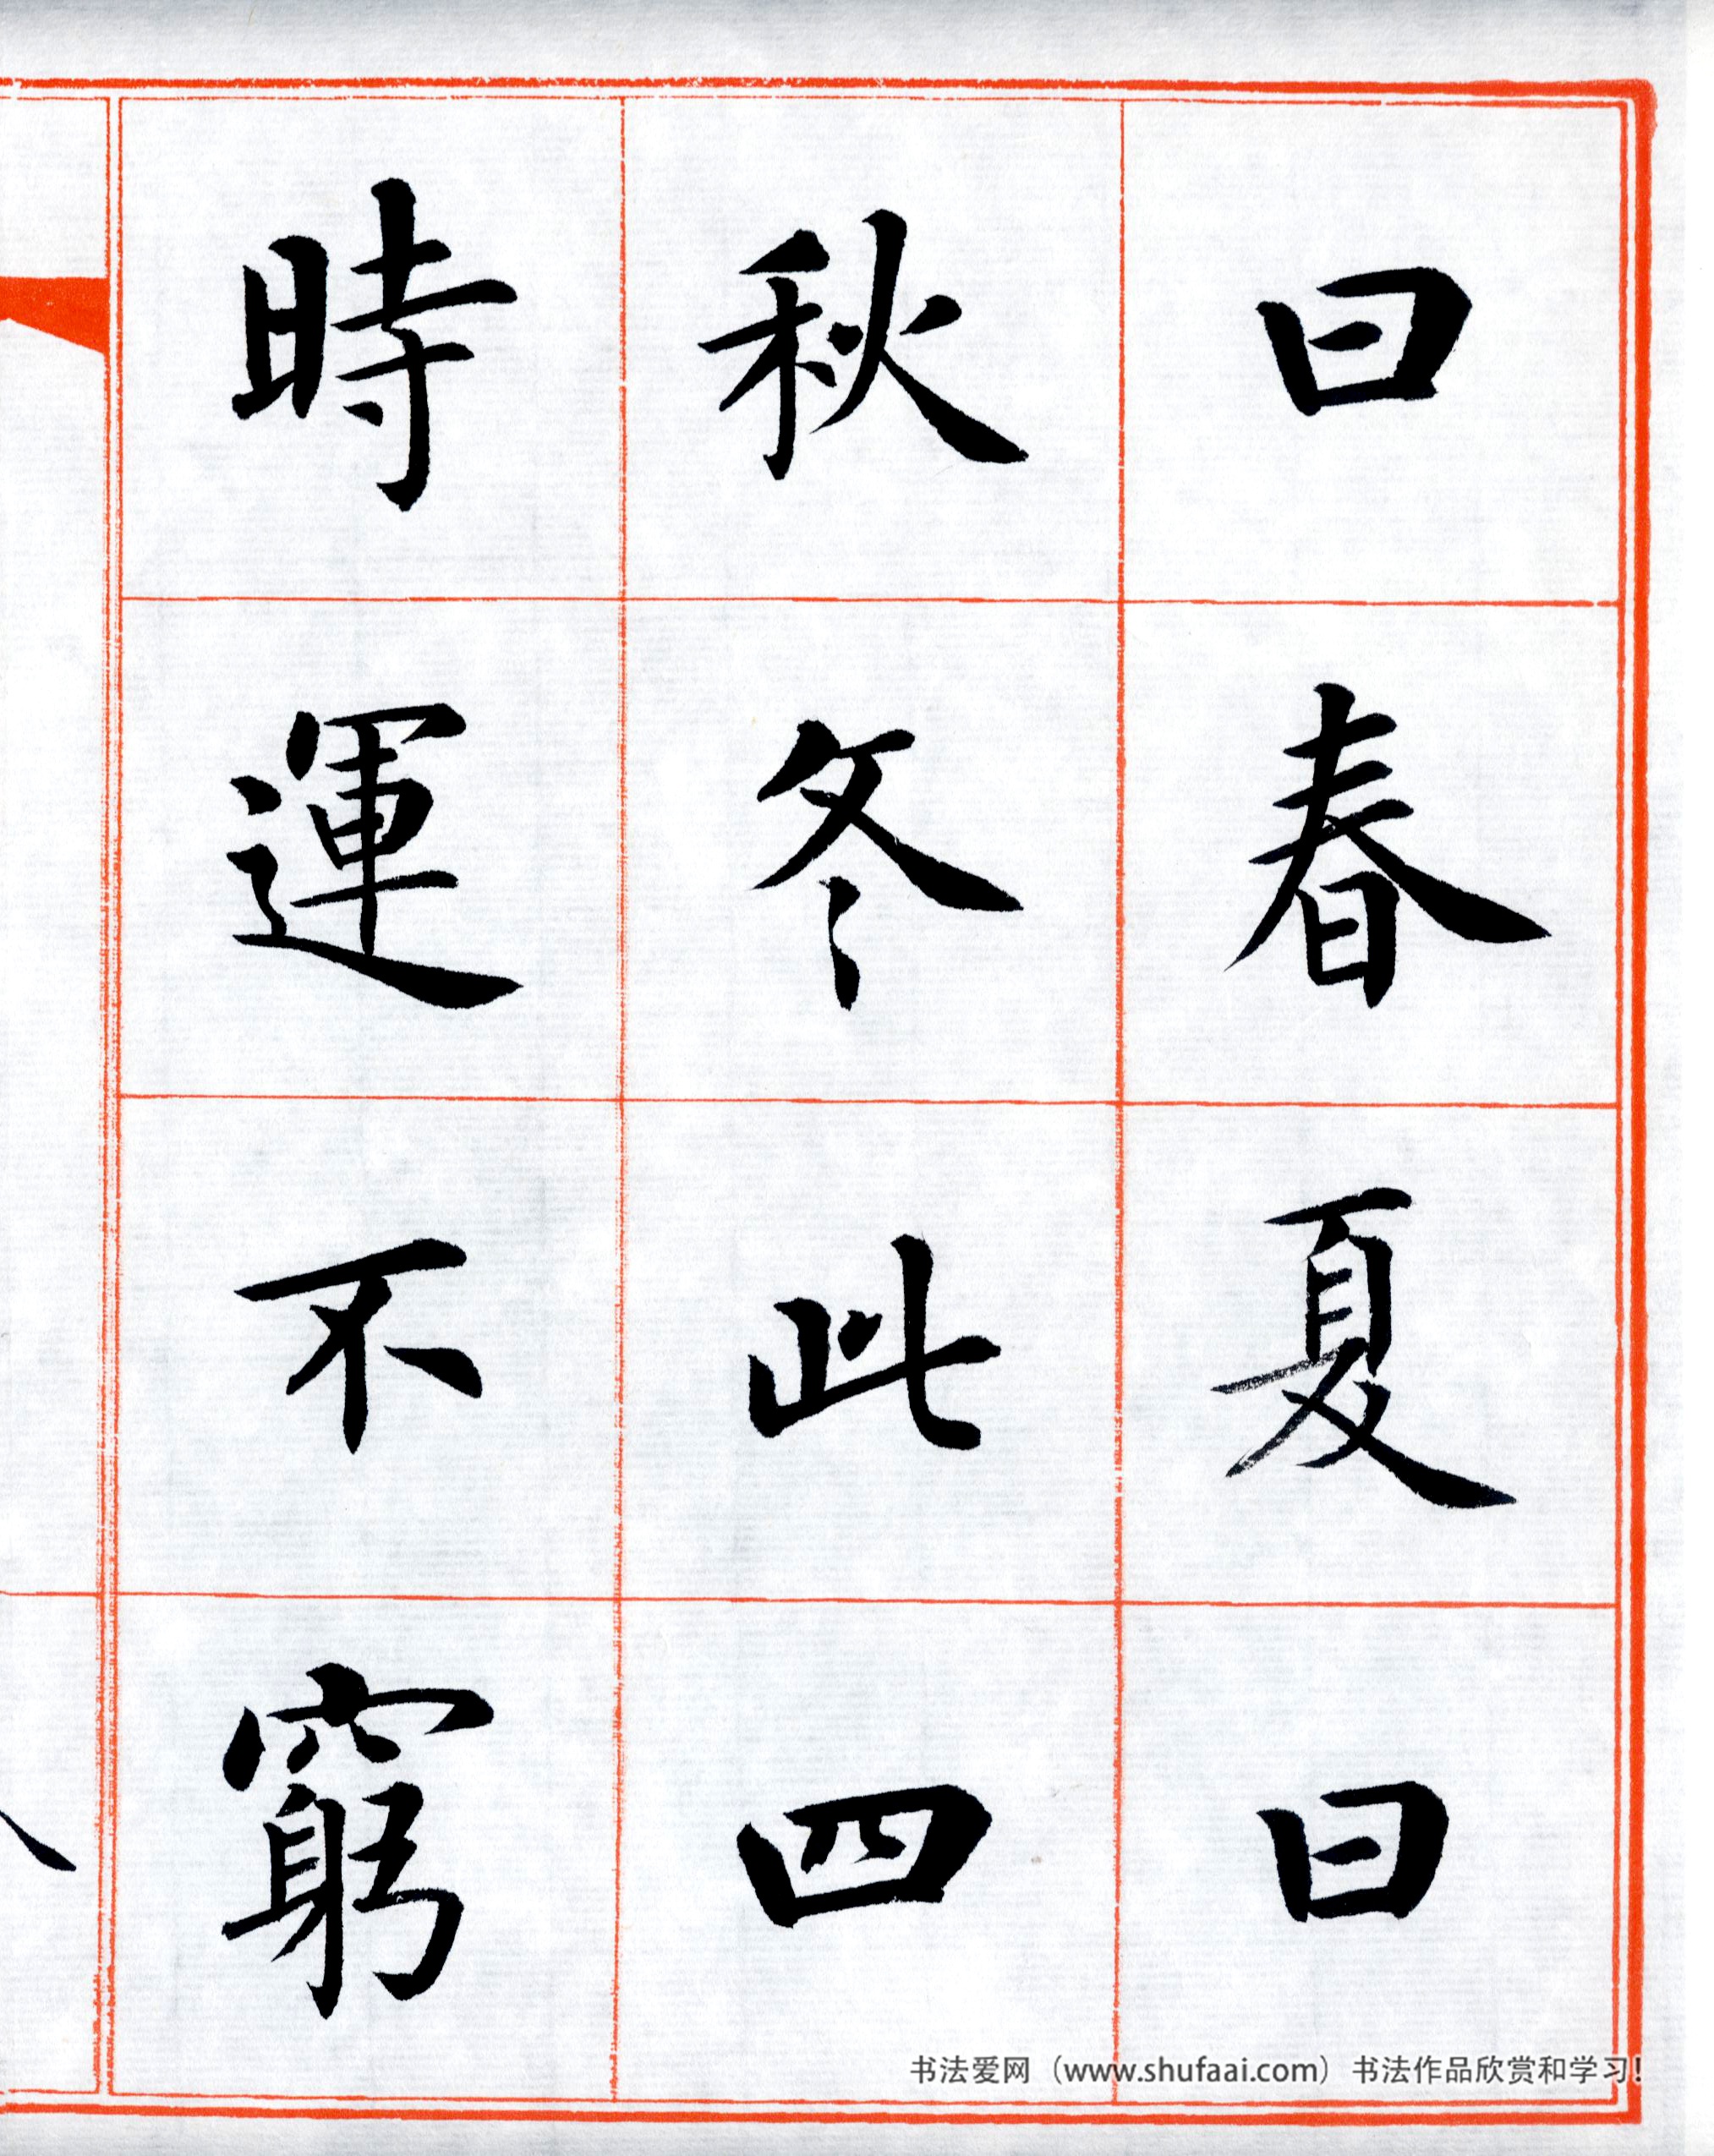 曰春夏曰
秋冬此四
時運不窮
书法爱网（www.shufaai.com）书法作品欣赏和学习！